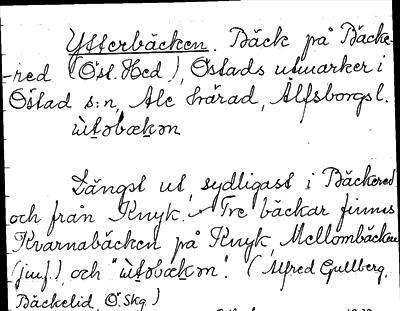 Ytterbäcken. Bäck på Bäcke-
-red (Östl. Hed), Östads utmarker i
Östad s:n, Ale härad, Älfsborgs l.
ùtəbækən
Längst ut, sydligast i Bäckered
och från Knyk. Tre bäckar finns
Kvarnabäcken på Knyk, Mellombäcken
(jmf.) och "ùtəbækən". (Alfred Gullberg,
Bäckelid, Ö. Skg.)